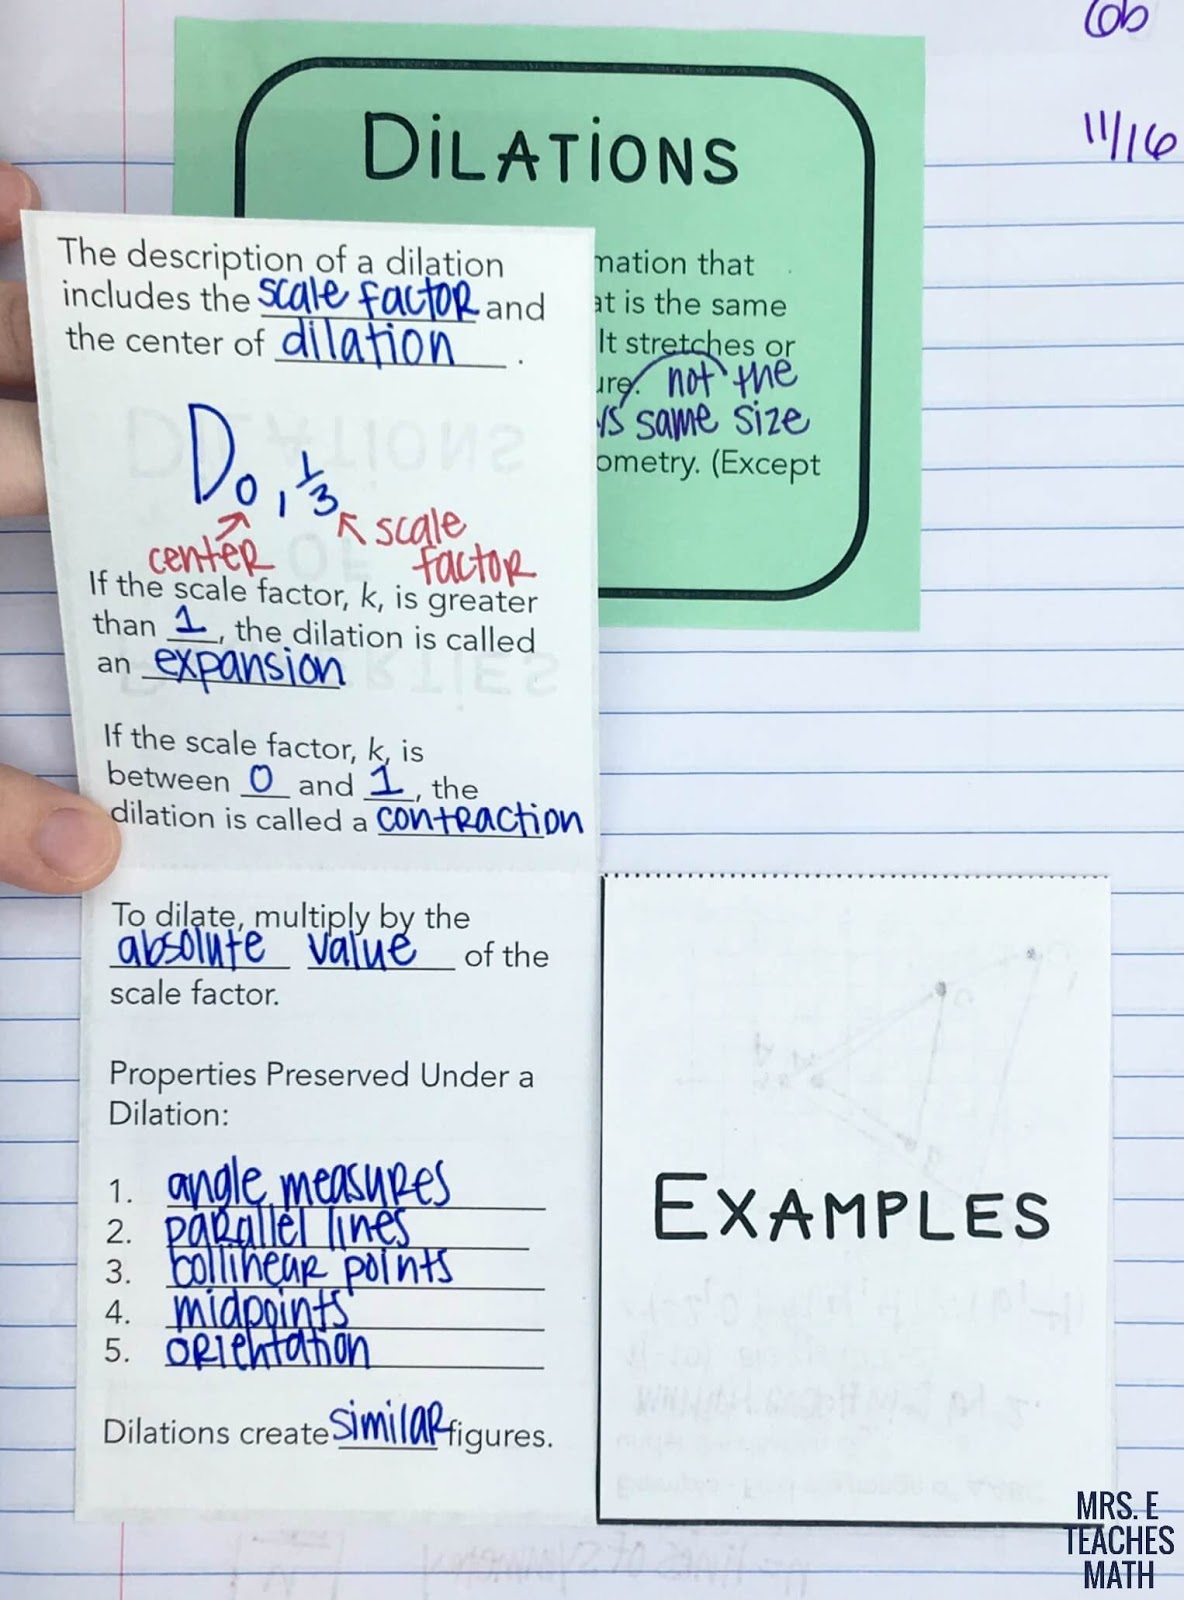 6b
11/16
DiLATiONS
mation that
at is the same
It stretches or
ure. not the
is same size
ometry. (Except
The description of a dilation
includes the scale factor and
the center of dilation .
D O, 1/3
center
scale
factor
If the scale factor, k, is greater
than 1, the dilation is called
an expansion
If the scale factor, k, is
between 0 and 1, the
dilation is called a contraction
To dilate, multiply by the
absolute value of the
scale factor.
Properties Preserved Under a
Dilation:
1. angle measures
2. parallel lines
3. collinear points
4. midpoints
5. orientation
Dilations create similar figures.
EXAMPLES
MRS. E
TEACHES
MATH